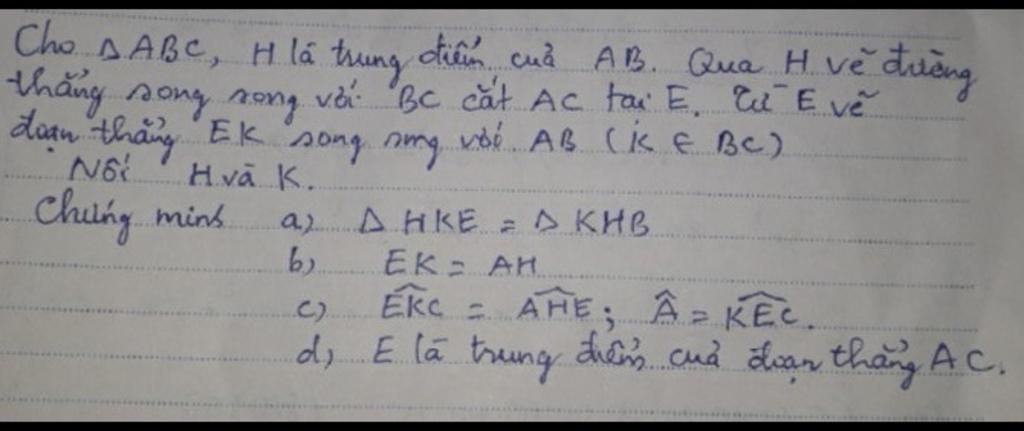 Cho △ABC, H là trung điểm của AB. Qua H vẽ đường
thẳng song song với BC cắt AC tại E. Từ E vẽ
đoạn thẳng EK song song với AB (K ∈ BC)
Nối H và K.
Chứng minh a) △ HKE = △ KHB
b) EK = AH
c) \widehat{EKC} = \widehat{AHE}; \widehat{A} = \widehat{KEC}.
d) E là trung điểm của đoạn thẳng AC.